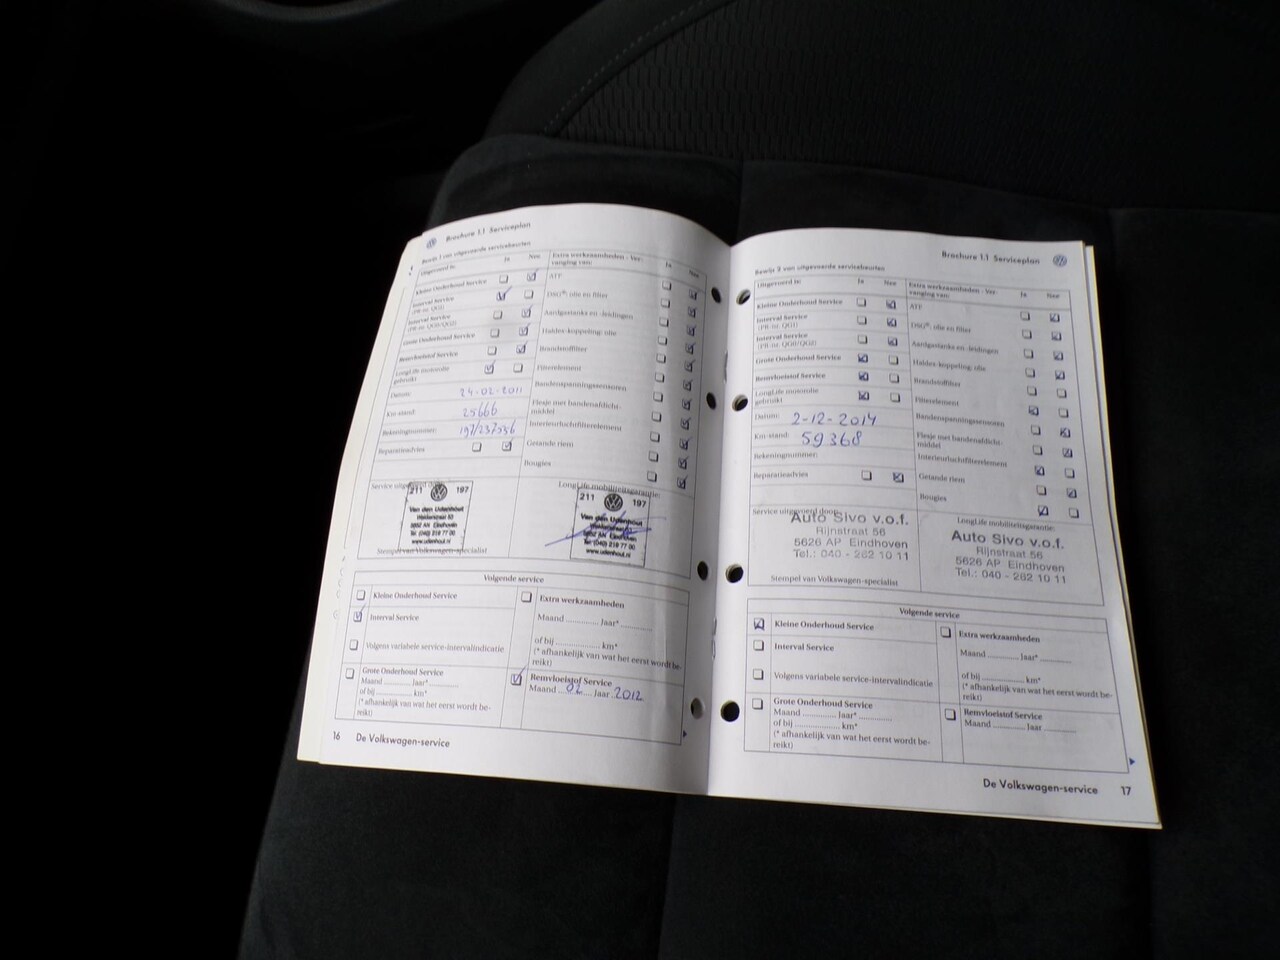 Brochure 1.1 Serviceplan
Bewijs 1 van uitgevoerde servicebeurten
Uitgevoerd is:
Ja
Nee
Kleine Onderhoud Service
Interval Service
(PR-nr. QG1)
Interval Service
(PR-nr. QG0/QG2)
Grote Onderhoud Service
Remvloeistof Service
LongLife motorolie
gebruikt
Datum:
24-02-2011
Km-stand:
25666
Rekeningnummer:
197/237556
Reparatieadvies
Extra werkzaamheden - Ver-
vanging van:
Ja
Nee
ATF
DSG®: olie en filter
Aardgastanks en -leidingen
Haldex-koppeling: olie
Brandstoffilter
Filterelement
Bandenspanningssensoren
Flesje met bandenafdicht-
middel
Interieurluchtfilterelement
Getande riem
Bougies
Service uitgevoerd door:
211
197
Van den Udenhout
5652 AN Eindhoven
Tel: (040) 218 77 00
www.udenhout.nl
Stempel van Volkswagen-specialist
LongLife mobiliteitsgarantie:
211
197
Van den Udenhout
5652 AN Eindhoven
Tel: (040) 218 77 00
www.udenhout.nl
Volgende service
Kleine Onderhoud Service
Interval Service
Volgens variabele service-intervalindicatie
Grote Onderhoud Service
Maand ............ Jaar* ...............
of bij ................... km*
(* afhankelijk van wat het eerst wordt be-
reikt)
Extra werkzaamheden
Maand ............ Jaar* ...............
of bij ................... km*
(* afhankelijk van wat het eerst wordt be-
reikt)
Remvloeistof Service
Maand 02 Jaar 2012
16 De Volkswagen-service
Brochure 1.1 Serviceplan
Bewijs 2 van uitgevoerde servicebeurten
Uitgevoerd is:
Ja
Nee
Kleine Onderhoud Service
Interval Service
(PR-nr. QG1)
Interval Service
(PR-nr. QG0/QG2)
Grote Onderhoud Service
Remvloeistof Service
LongLife motorolie
gebruikt
Datum:
2-12-2014
Km-stand:
59368
Rekeningnummer:
Reparatieadvies
Extra werkzaamheden - Ver-
vanging van:
Ja
Nee
ATF
DSG®: olie en filter
Aardgastanks en -leidingen
Haldex-koppeling: olie
Brandstoffilter
Filterelement
Bandenspanningssensoren
Flesje met bandenafdicht-
middel
Interieurluchtfilterelement
Getande riem
Bougies
Service uitgevoerd door:
Auto Sivo v.o.f.
Rijnstraat 56
5626 AP Eindhoven
Tel.: 040 - 262 10 11
Stempel van Volkswagen-specialist
LongLife mobiliteitsgarantie:
Auto Sivo v.o.f.
Rijnstraat 56
5626 AP Eindhoven
Tel.: 040 - 262 10 11
Volgende service
Kleine Onderhoud Service
Interval Service
Volgens variabele service-intervalindicatie
Grote Onderhoud Service
Maand ............ Jaar* ...............
of bij ................... km*
(* afhankelijk van wat het eerst wordt be-
reikt)
Extra werkzaamheden
Maand ............ Jaar* ...............
of bij ................... km*
(* afhankelijk van wat het eerst wordt be-
reikt)
Remvloeistof Service
Maand ............ Jaar ...............
De Volkswagen-service 17